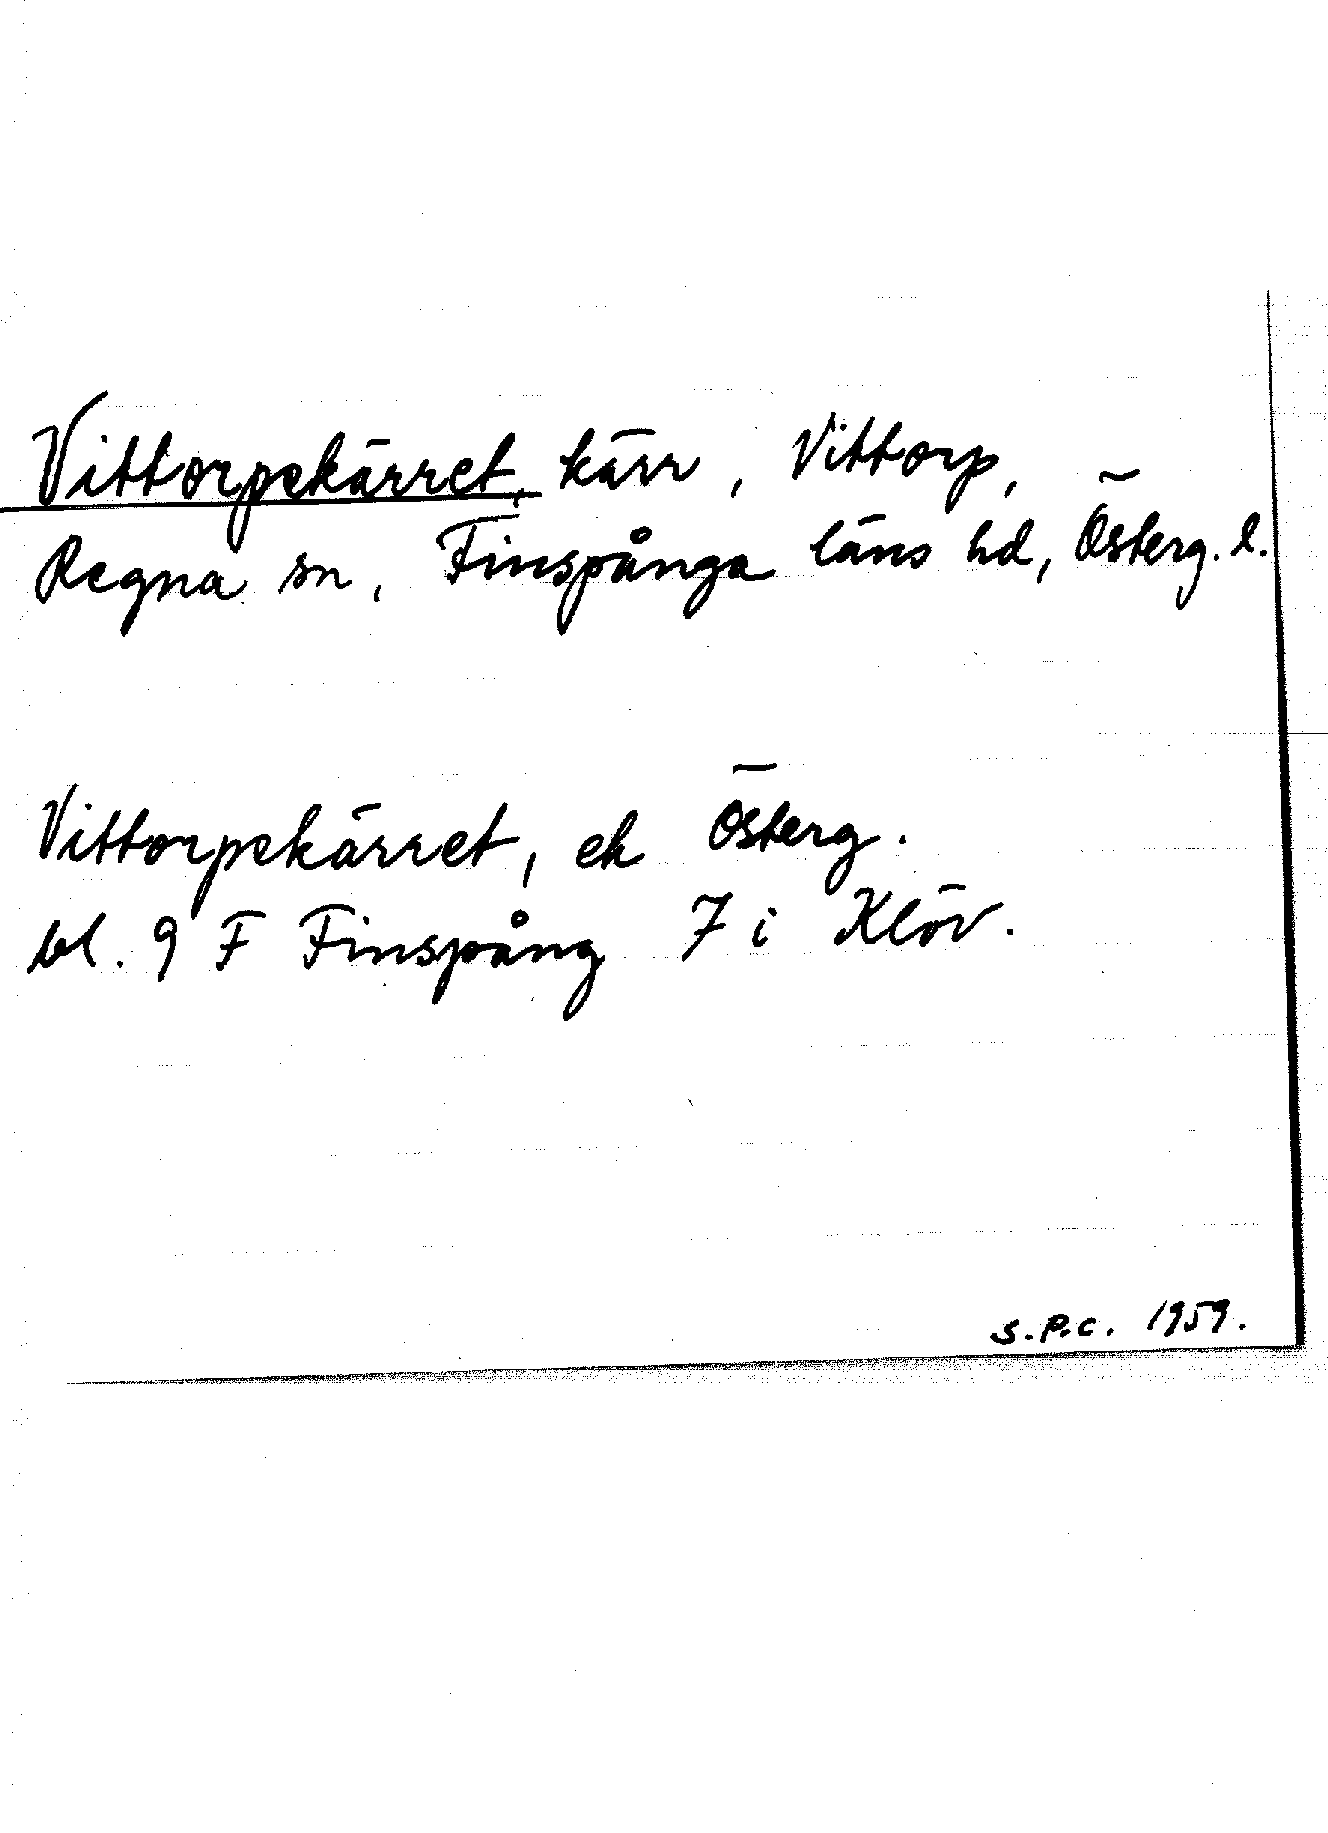 Vittorpekärret, kärr, Vittorp,
Regna sn, Finspånga läns hd, Österg. l.
Vittorpekärret, ek Österg.
bl. 9 F Finspång 7 i Klöv.
S.P.C. 1959.